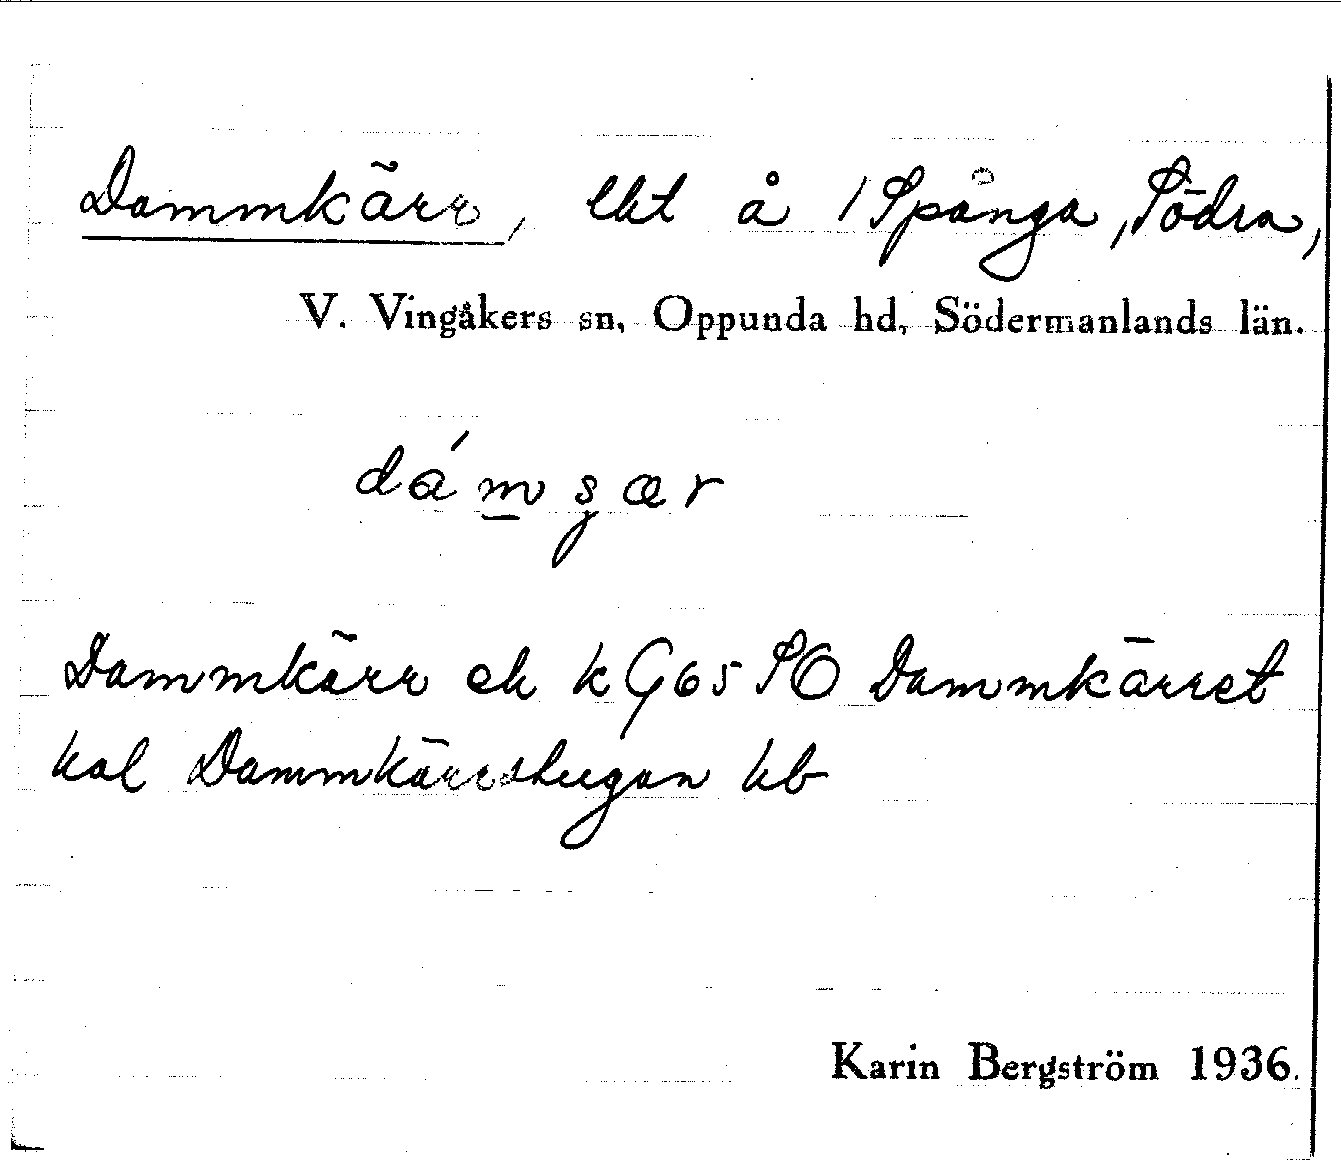 Dammkärr, lht å 1 Spånga, Södra,
V. Vingåkers sn, Oppunda hd, Södermanlands län.
dámʂær
Dammkärr ek k G65 SO Dammkärret
hal Dammkärrstugan hb
Karin Bergström 1936.